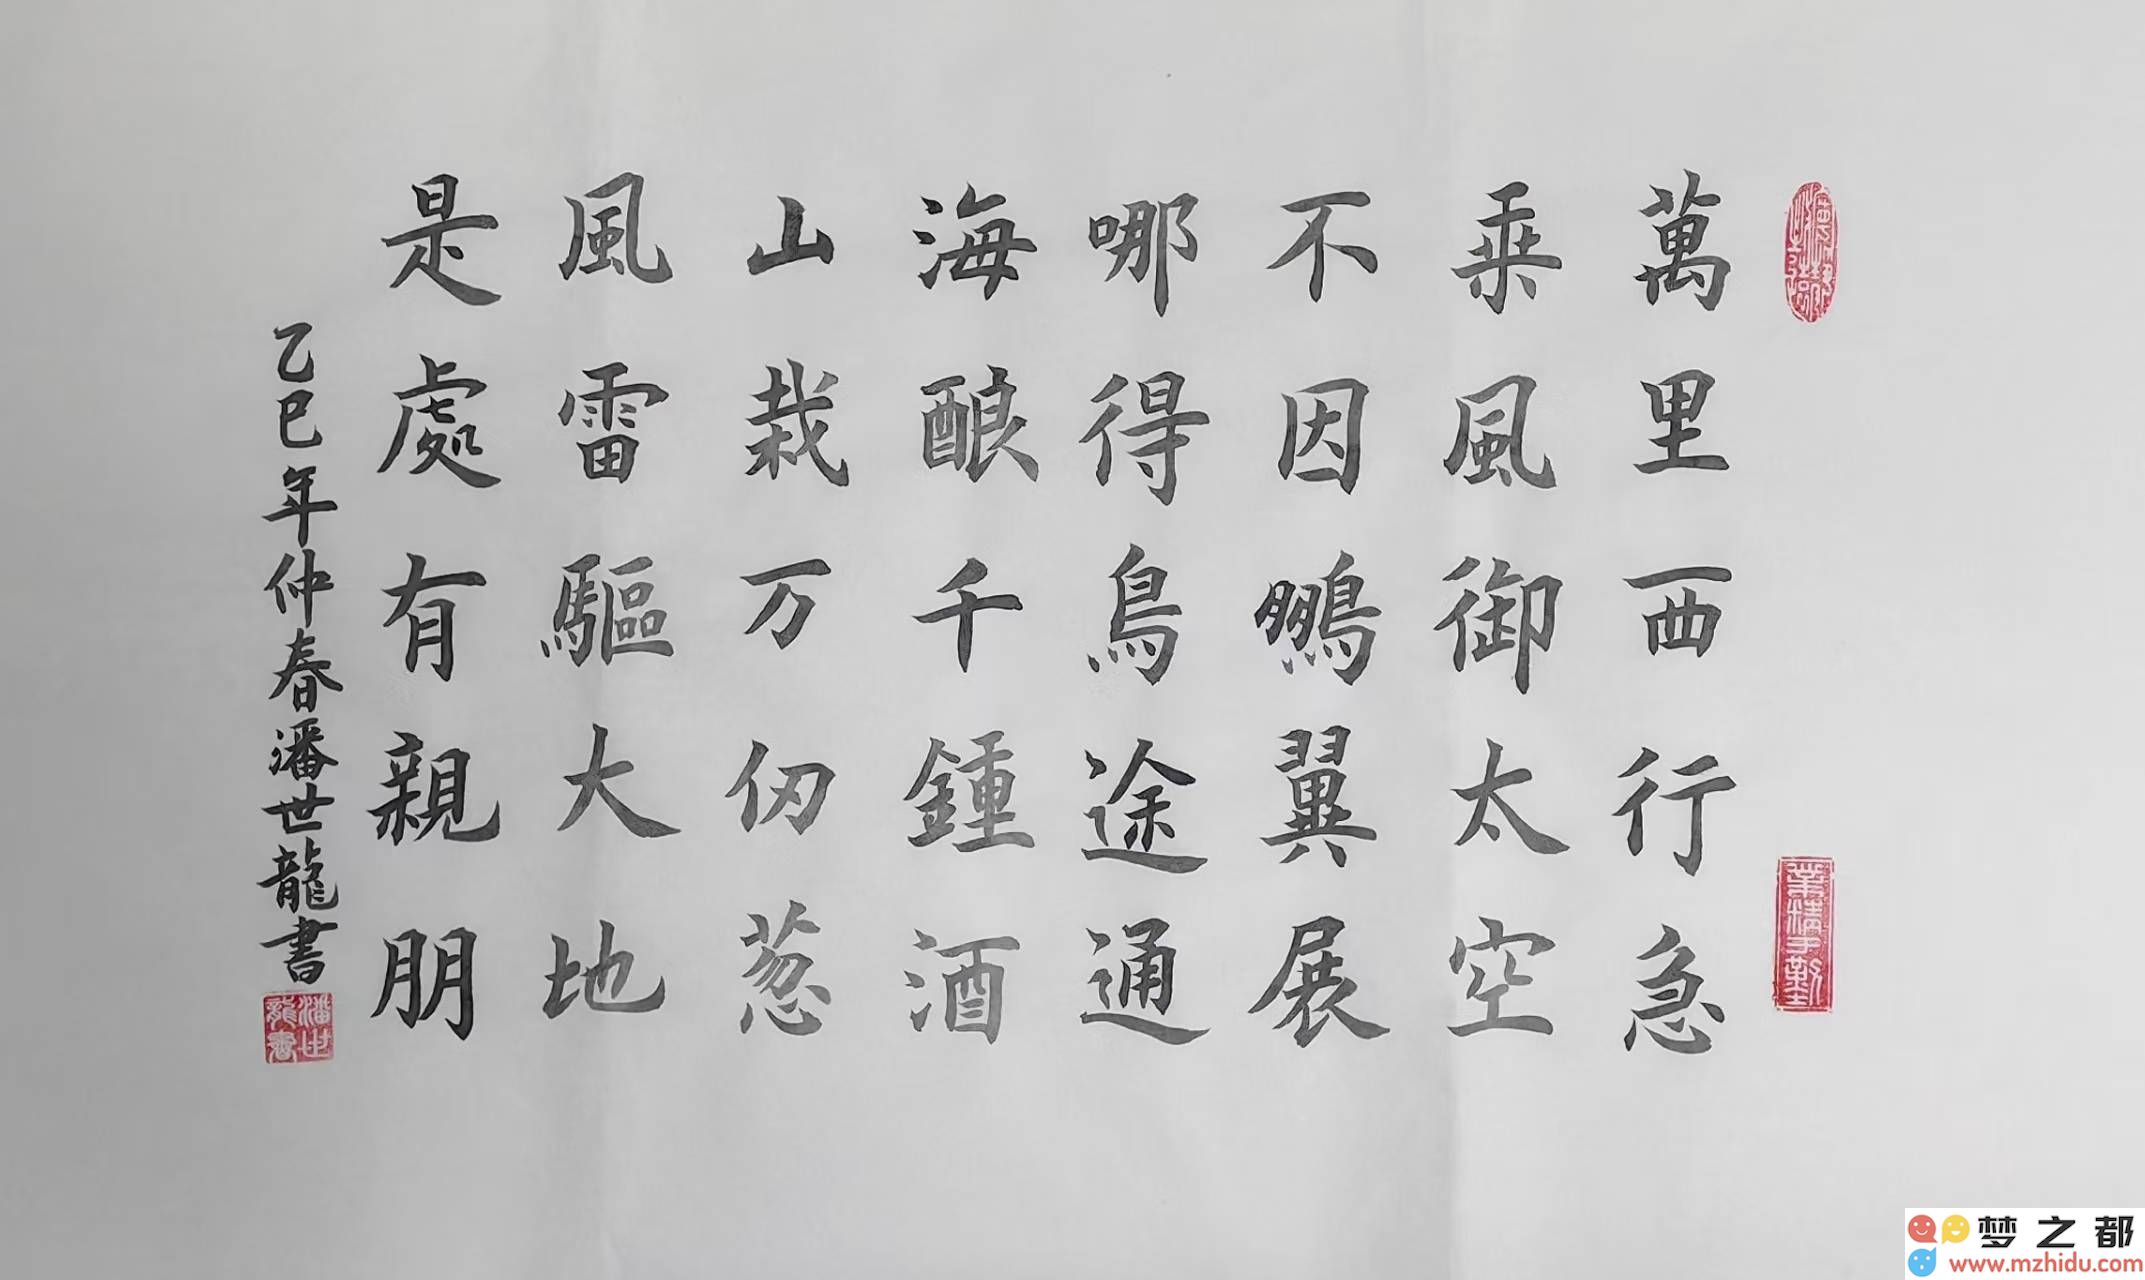 萬里西行急
乘風御太空
不因鵬翼展
哪得鳥途通
海酿千鍾酒
山栽万仞葱
風雷驅大地
是處有親朋
乙巳年仲春潘世龍書
業精于勤
潘世龍書
梦之都
www.mzhidu.com